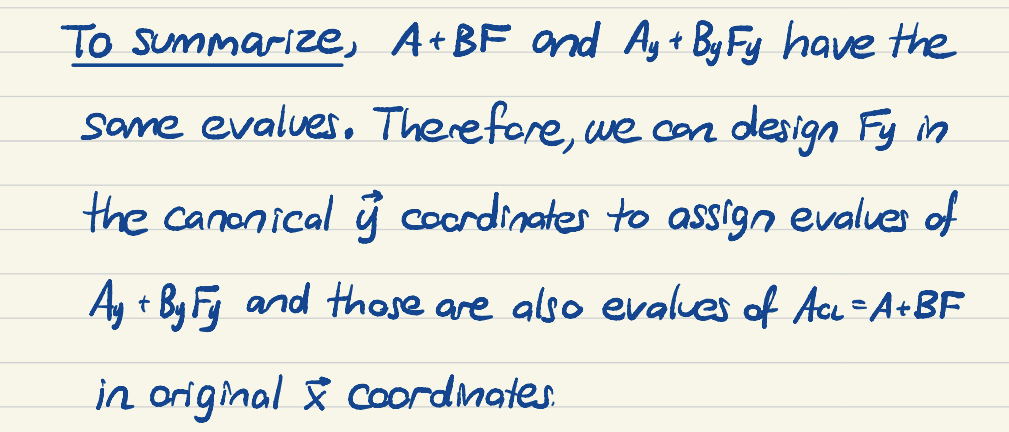 To summarize, A + BF and Ay + ByFy have the
same evalues. Therefore, we can design Fy in
the canonical y⃗ coordinates to assign evalues of
Ay + ByFy and those are also evalues of ACL = A+BF
in original x⃗ coordinates.